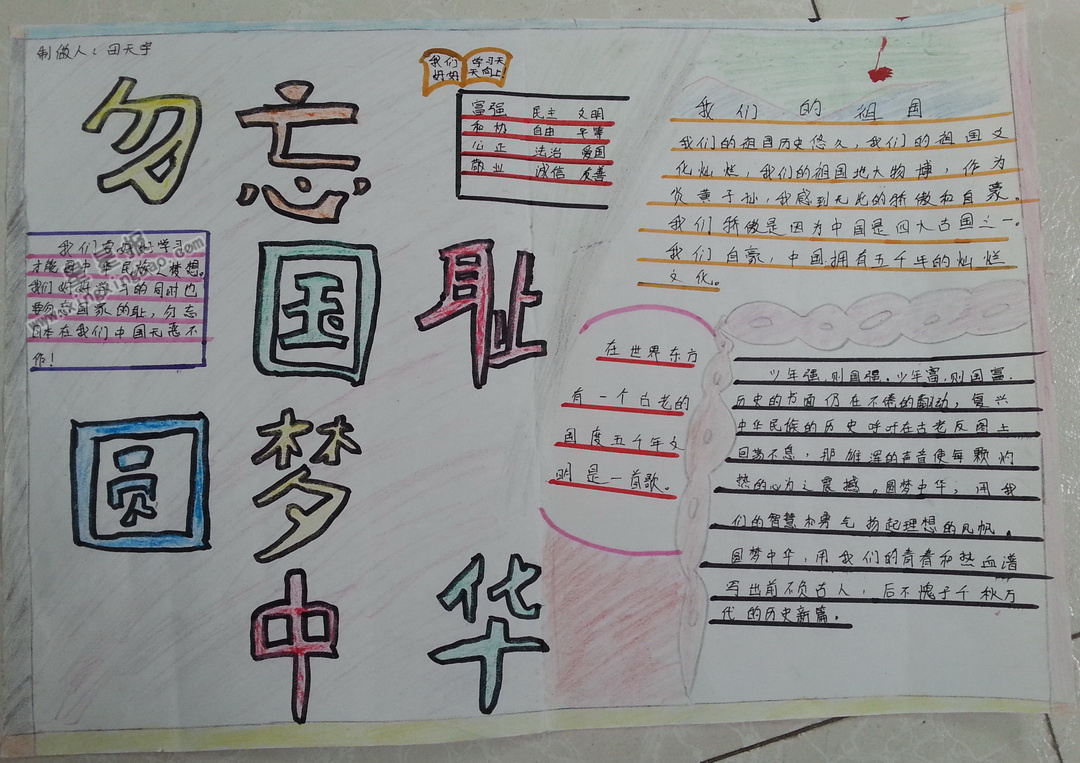 制做人：田天宇
勿忘
国耻
圆梦
中华
我们 学习天
好好 天向上!
富强 民主 文明
和协 自由 平等
心正 法治 爱国
敬业 诚信 友善
我们要好好学习
才能 中华民族 梦想。
我们好好学习的同时也
要勿忘国家的耻，勿忘
日本在我们中国无恶不
作!
我们的祖国
我们的祖国历史悠久，我们的祖国文
化灿烂，我们的祖国地大物博，作为
炎黄子孙，我感到无比的骄傲和自豪。
我们骄傲是因为中国是四大古国之一。
我们自豪，中国拥有五千年的灿烂
文化。
在世界东方
有一个古老的
国度五千年文
明是一首歌。
少年强，则国强。少年富，则国富.
历史的书面仍在不倦的翻动，复兴
中华民族的历史呼吁在古老反图上
回荡不息，那雄浑的声音使每颗灼
热的心为之震撼。圆梦中华，用我
们的智慧和勇气扬起理想的风帆。
圆梦中华，用我们的青春和热血谱
写出前不负古人，后不愧于千秋万
代的历史新篇。